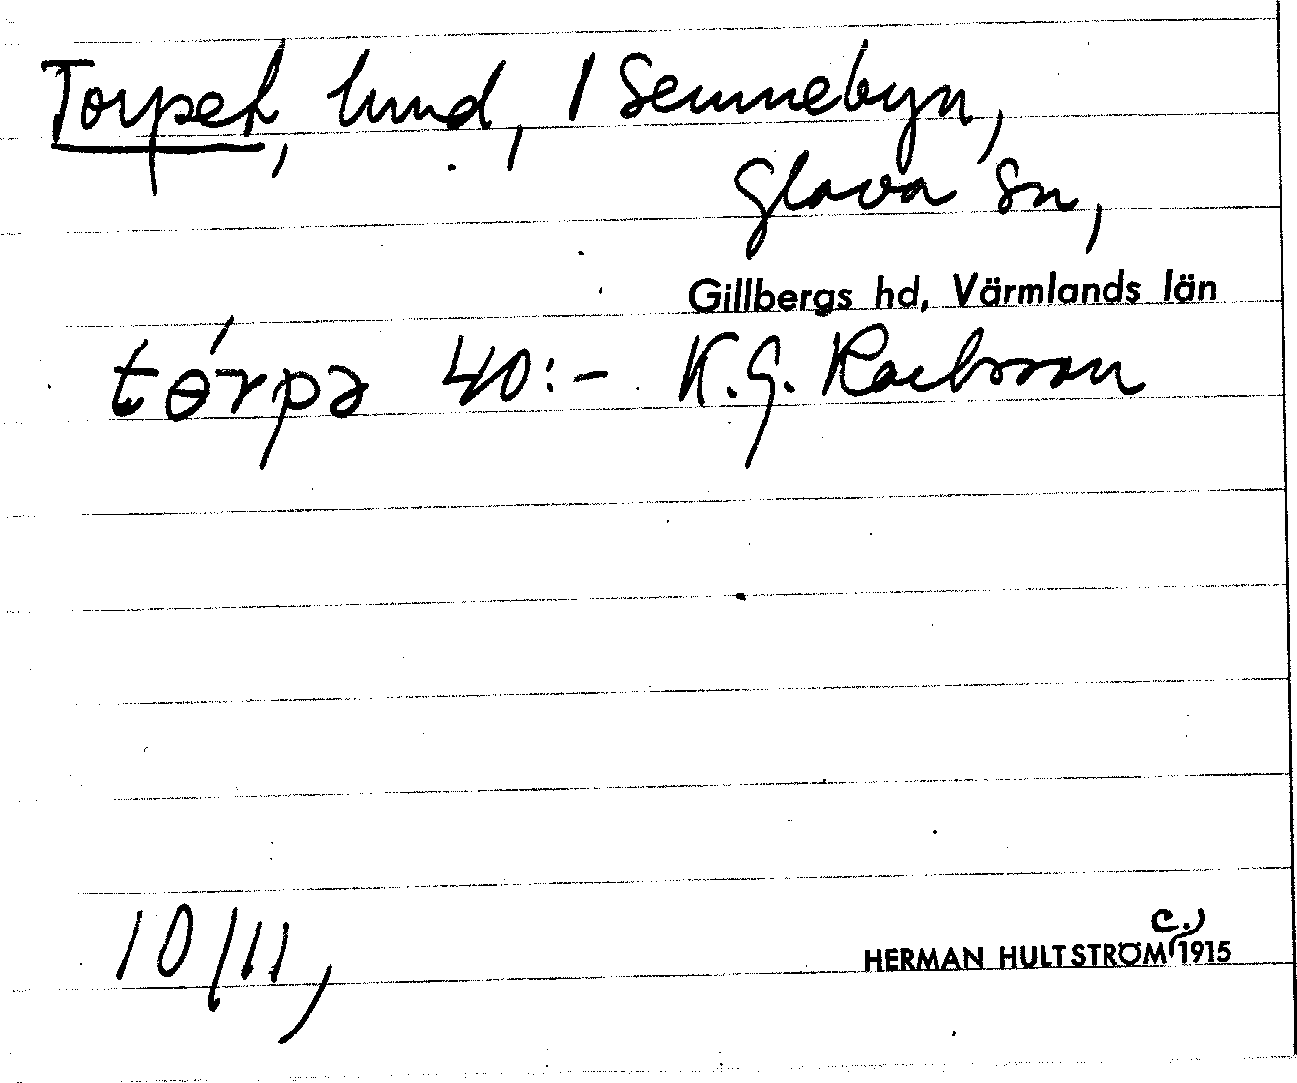 Torpet, lund, 1 Sennebyn,
Glava sn,
Gillbergs hd, Värmlands län
tɵ́rpə 40:- K.G.
10/11,
c.)
HERMAN HULTSTRÖM 1915